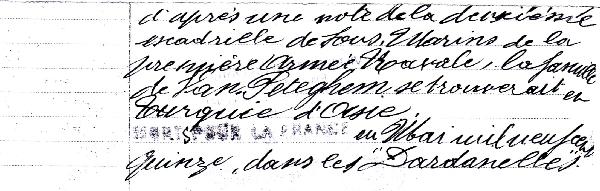 d'après une note de la deuxième
escadrille de Sous-Marins de la
première Armée Navale, la famille
de Van Peteghem se trouverait en
Turquie d'Asie.
MORTS POUR LA FRANCE en Mai mil neuf cent
quinze, dans les "Dardanelles".